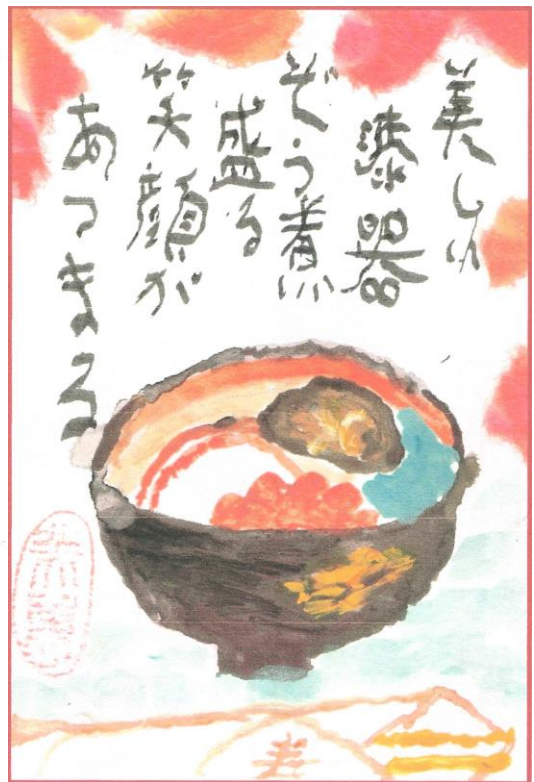 美しい
漆器
ぞう煮
盛る
笑顔が
あつまる
寿